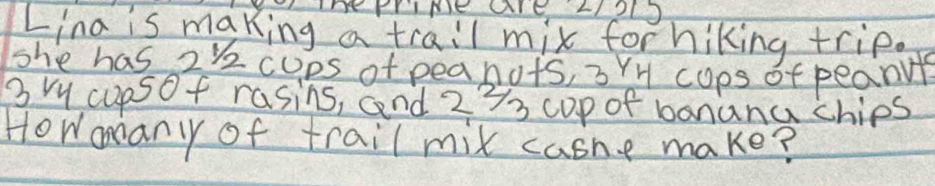 the prime are 2/3/5
Lina is making a trail mix for hiking trip.
she has 2 1/2 cups of peanots, 3 1/4 cups of peanuts
3 1/4 cups of rasins, and 2 2/3 cop of banana chips
How manly of trail mix cashe make?